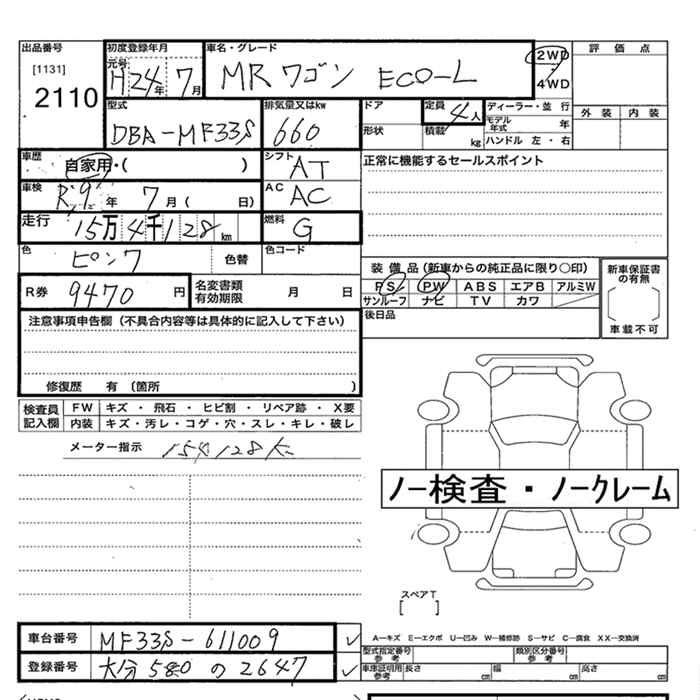 出品番号 初度登録年月 車名・グレード 2WD 評価点
[1131] 元号 H24年 7月 MRワゴン ECO-L 4WD
2110 型式 排気量又はkw ドア 定員 4人 ディーラー・並行 外装 内装
DBA-MF33S 660 形状 積載 kg モデル年式 年
ハンドル 左・右
車歴 自家用・( ) シフト AT 正常に機能するセールスポイント
車検 R9年 7月( 日) AC AC
走行 15万4千128km 燃料 G
色 ピンク 色替 色コード
装備品(新車からの純正品に限り○印) 新車保証書の有無
R券 9470円 名変書類有効期限 月 日 PS PW ABS エアB アルミW
サンルーフ ナビ TV カワ 車載不可
注意事項申告欄(不具合内容等は具体的に記入して下さい) 後日品
修復歴 有 (箇所 )
検査員記入欄 FW キズ・飛石・ヒビ割・リペア跡・X要
内装 キズ・汚レ・コゲ・穴・スレ・キレ・破レ
メーター指示 154128K
ノー検査・ノークレーム
スペアT
[ ]
車台番号 MF33S-611009 A-キズ E-エクボ U-凹み W-補修跡 S-サビ C-腐食 XX-交換済
型式指定番号 参考 類別区分番号 参考
登録番号 大分 580 の 2647 車庫証明用 参考 長さ cm 幅 cm 高さ cm